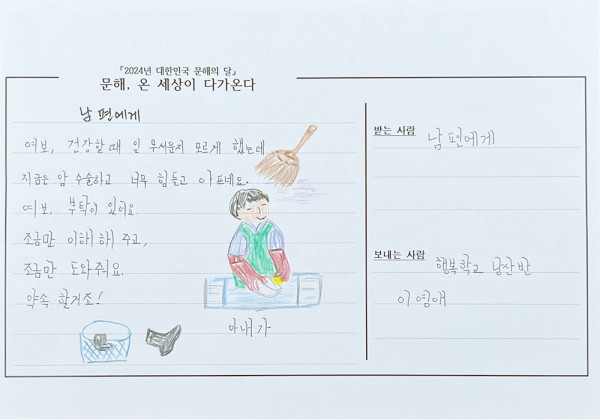 「2024년 대한민국 문해의 달」
문해, 온 세상이 다가온다
남편에게
여보, 건강할때 일 무서운지 모르게 했는데
지금은 암 수술하고 너무 힘들고 아프네요.
여보, 부탁이 있어요
조금만 이해해 주고,
조금만 도와줘요.
약속 할거죠!
아내가
받는 사람
남편에게
보내는 사람
행복학교 남산반
이영애